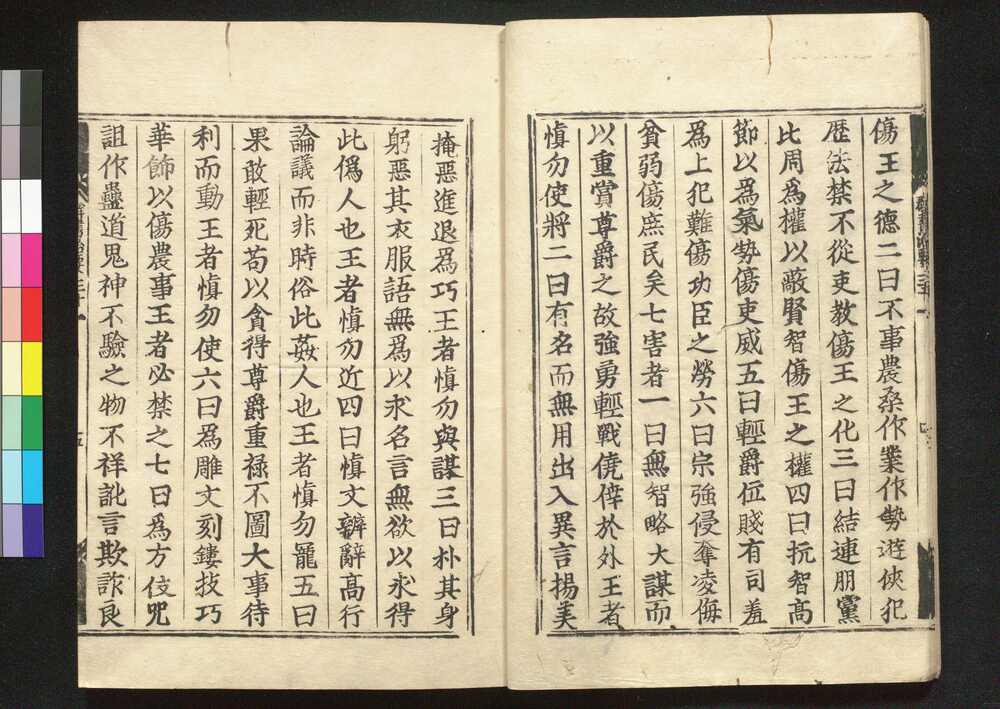 傷王之德二曰不事農桑作業作勢遊俠犯
歷法禁不從吏教傷王之化三曰結連朋黨
比周為權以蔽賢智傷王之權四曰抗智高
節以為氣勢傷吏威五曰輕爵位賤有司羞
為上犯難傷功臣之勞六曰宗強侵奪凌侮
貧弱傷庶民矣七害者一曰無智略大謀而
以重賞尊爵之故強勇輕戰僥倖於外王者
慎勿使將二曰有名而無用出入異言揚美
掩惡進退為巧王者慎勿與謀三曰朴其身
躬惡其衣服語無為以求名言無欲以求得
此偽人也王者慎勿近四曰慎文辯辭高行
論議而非時俗此姦人也王者慎勿寵五曰
果敢輕死苟以貪得尊爵重祿不圖大事待
利而動王者慎勿使六曰為雕文刻鏤技巧
華飾以傷農事王者必禁之七曰為方伎咒
詛作蠱道鬼神不驗之物不祥訛言欺詐良